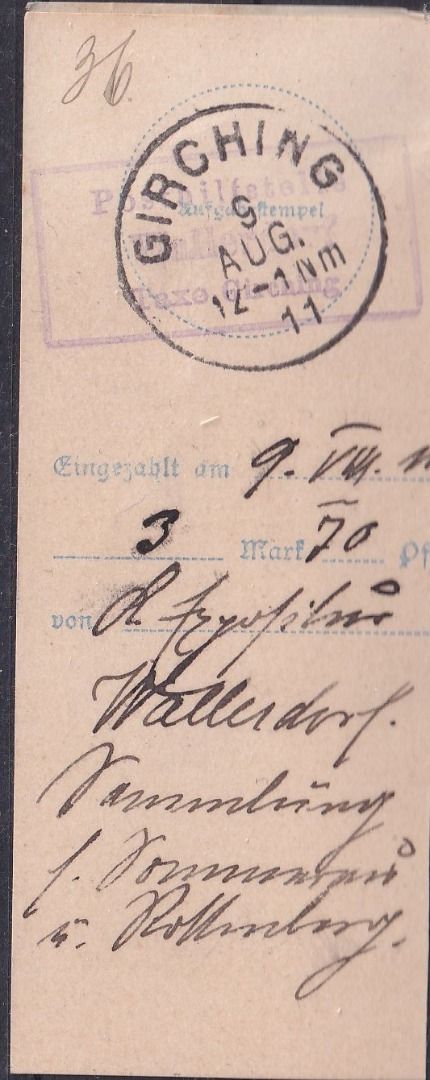 36.
GIRCHING
Posthilfstelle
Aufgabestempel
9
AUG.
12-1 Nm
11
Taxe Girching
Eingezahlt am 9. VIII. 11
3 Mark 70 Pf
von d. Expositur
Wallersdorf.
Sammlung
f. Sommerau
u. Rottenberg.